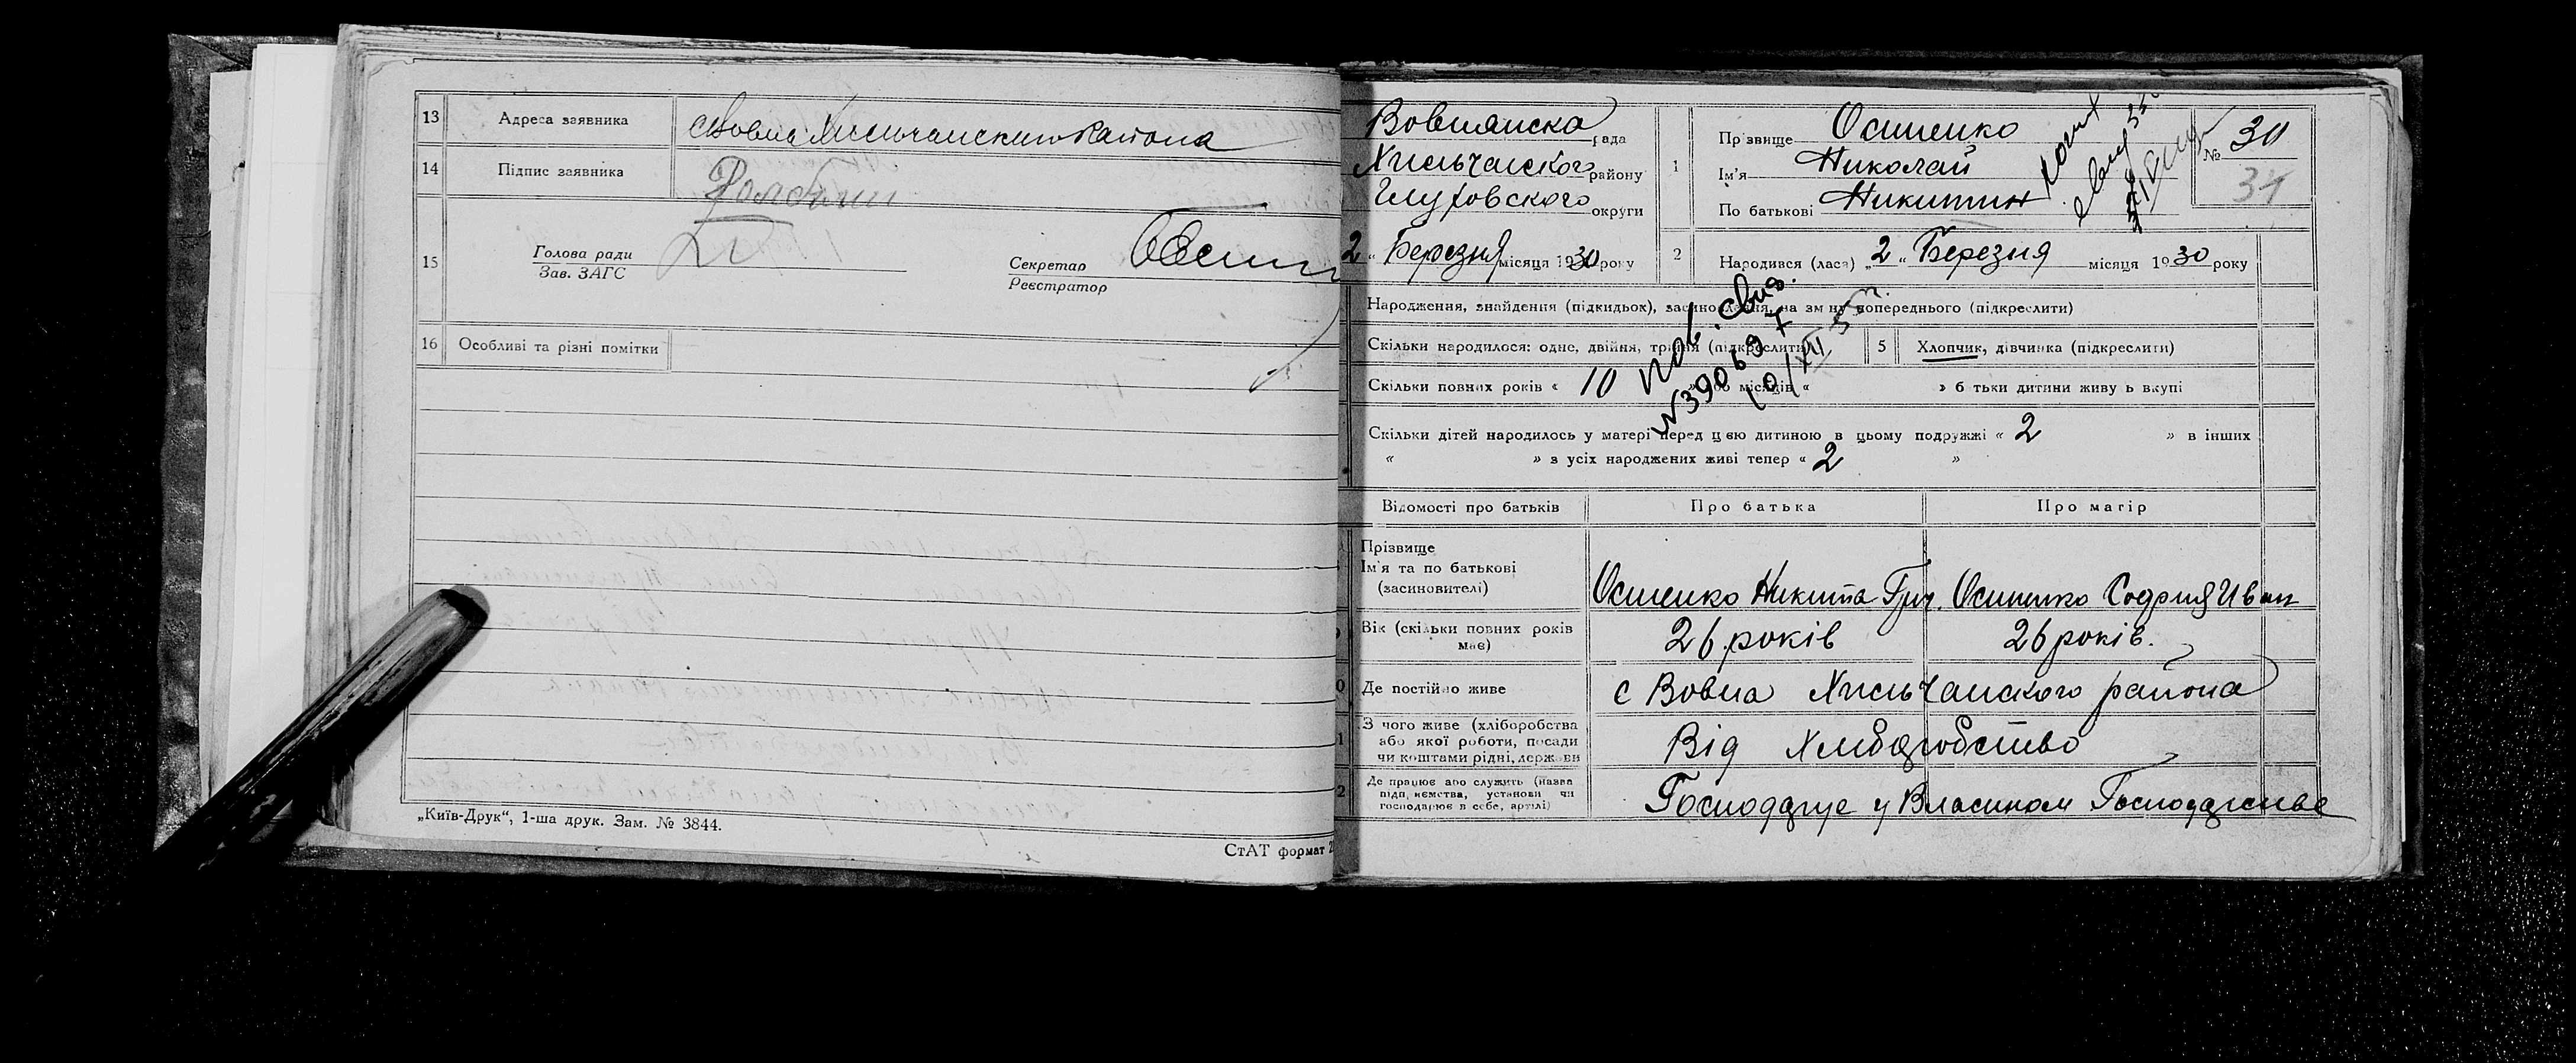 13 Адреса заявника с Вовна Хильчанского района
14 Підпис заявника
15 Голова ради
Зав. ЗАГС
Секретар
Реєстратор
16 Особливі та різні помітки
„Київ-Друк“, 1-ша друк. Зам. № 3844.
СтАТ формат
Вовнянска рада
Хильчанского району
Глуховского округи
2 " Березня місяця 1930 року
1 Прізвище Осипенко
Ім'я Николай
По батькові Никитин
№ 30
34
2 Народився (лася) „2 " Березня місяця 1930 року
Народження, знайдення (підкидьок), засиновлення, на зміну попереднього (підкреслити)
Скільки народилося: одне, двійня, трійня (підкреслити)
5 Хлопчик, дівчинка (підкреслити)
Скільки повних років « 10 » або місяців « » батьки дитини живуть вкупі
пов. свид.
№390697
10/XII 5
Скільки дітей народилось у матері перед цією дитиною в цьому подружжі « 2 » в інших
« » з усіх народжених живі тепер « 2 »
Відомості про батьків Про батька Про матір
Прізвище
Ім'я та по батькові
(засиновителі)
Осипенко Никита Григ. Осипенко София Иван
Вік (скільки повних років має) 26 років 26 років.
Де постійно живе с Вовна Хильчанского района
З чого живе (хліборобства
або якої роботи, посади
чи коштами рідні, держави
Від Хліборобство
Де працює або служить (назва
підприємства, установи чи
господарює в себе, артілі)
Господарує у Власином Господарстве